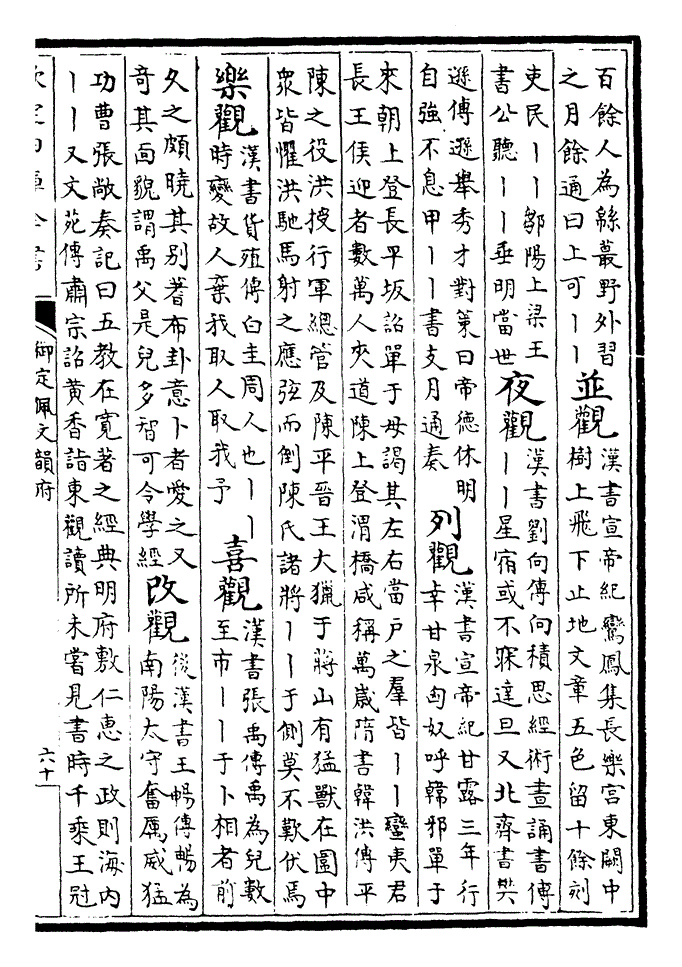 百餘人為緜蕞野外習
之月餘通曰上可丨丨
並觀
漢書宣帝紀鸞鳳集長樂宮東闕中
樹上飛下止地文章五色留十餘刻
吏民丨丨鄒陽上梁王
書公聽丨丨垂明當世
夜觀
漢書劉向傳向積思經術晝誦書傳
丨丨星宿或不寐達旦又北齊書樊
遜傳遜舉秀才對策曰帝德休明
自強不息甲丨丨書支月通奏
列觀
漢書宣帝紀甘露三年行
幸甘泉匈奴呼韓邪單于
來朝上登長平坂詔單于毋謁其左右當戶之羣皆丨丨蠻夷君
長王侯迎者數萬人夾道陳上登渭橋咸稱萬嵗隋書韓洪傳平
陳之役洪授行軍總管及陳平晉王大獵于蔣山有猛獸在圍中
衆皆懼洪馳馬射之應弦而倒陳氏諸將丨丨于側莫不歎伏焉
樂觀
漢書貨殖傳白圭周人也丨丨
時變故人棄我取人取我予
喜觀
漢書張禹傳禹為兒數
至市丨丨于卜相者前
久之頗曉其别蓍布卦意卜者愛之又
奇其面貌謂禹父是兒多智可令學經
改觀
後漢書王暢傳暢為
南陽太守奮厲威猛
功曹張敞奏記曰五教在寛著之經典明府敷仁惠之政則海内
丨丨又文苑傳肅宗詔黄香詣東觀讀所未嘗見書時千乘王冠
欽定四庫全書
御定佩文韻府
六十